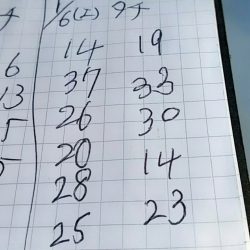 1/6(工) タチ
14 19
6 37 33
13 26 30
5 20 14
5 28 23
25